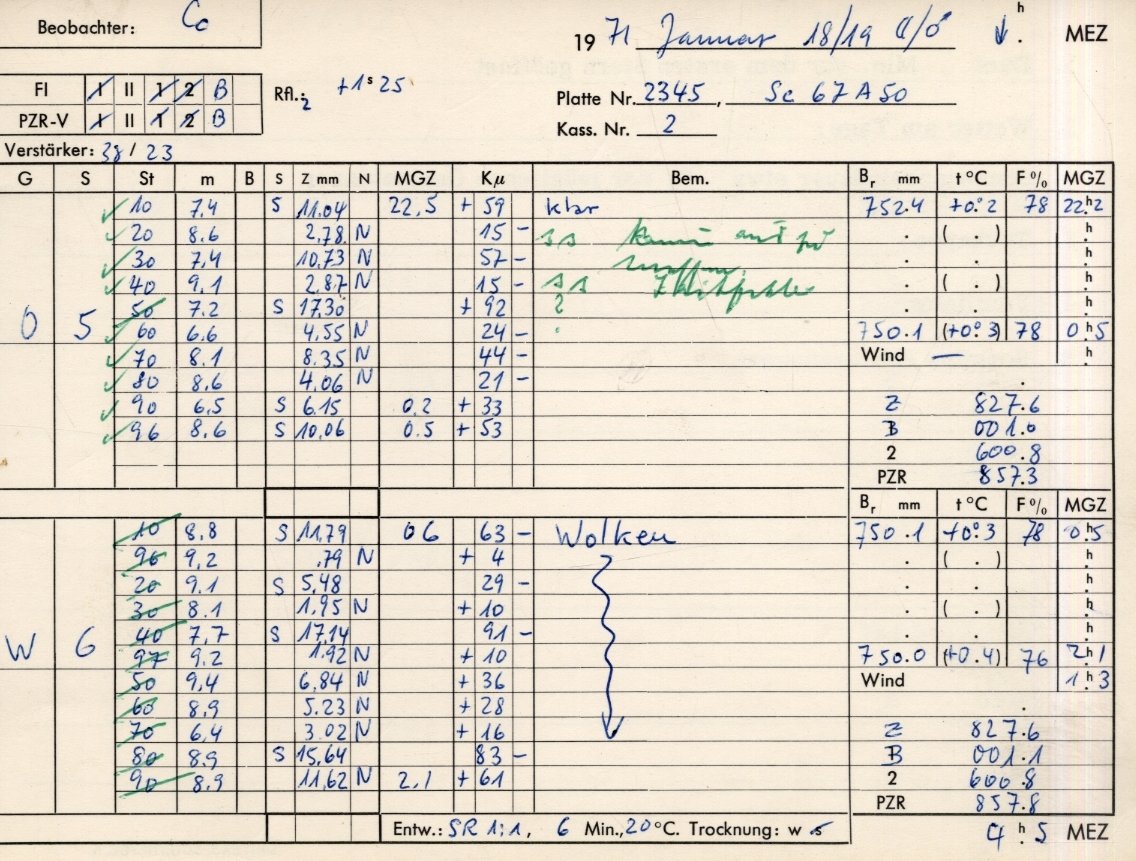 Beobachter: Co
19 71 Januar 18/19 h MEZ
FI I II 1 2 B
Rfl.: 2 +1ˢ25
Platte Nr. 2345, Sc 67A50
PZR-V I II 1 2 B
Kass. Nr. 2
Verstärker: 38 / 23
G S St m B S Z mm N MGZ Kμ Bem. Bᵣ mm t°C F% MGZ
10 7.4 S 11.04 22,5 + 59 klar 752.4 +0.°2 78 22.ʰ2
20 8.6 2,78 N 15 - ss kaum auf zu . ( . ) h
30 7,4 10,73 N 57 - . . h
40 9,1 2,87 N 15 - ss . ( . ) h
50 7.2 S 17,30 + 92 ? . . h
O 5 60 6.6 4,55 N 24 - 750.1 (+0.°3) 78 0.ʰ5
70 8.1 8.35 N 44 - Wind — h
80 8,6 4,06 N 21 - .
90 6,5 S 6.15 0.2 + 33 Z 827.6
96 8,6 S 10,06 0.5 + 53 B 001.0
2 600.8
PZR 857.3
Bᵣ mm t°C F% MGZ
10 8.8 S 11,79 06 63 - Wolken 750.1 +0.°3 78 0.ʰ5
96 9,2 ,79 N + 4 . ( . ) h
20 9.1 S 5,48 29 - . . h
30 8.1 1,95 N + 10 . ( . ) h
40 7,7 S 17,14 91 - . . h
W 6 97 9.2 1.92 N + 10 750.0 (+0.4) 76 2.ʰ1
50 9,4 6,84 N + 36 Wind 1.ʰ3
60 8,9 5.23 N + 28 .
70 6,4 3.02 N + 16 Z 827.6
80 8.9 S 15,64 83 - B 001.1
90 8.9 11,62 N 2.1 + 61 2 600.8
PZR 857.8
Entw.: SR 1:1, 6 Min., 20°C. Trocknung: w s 4 ʰ. 5 MEZ